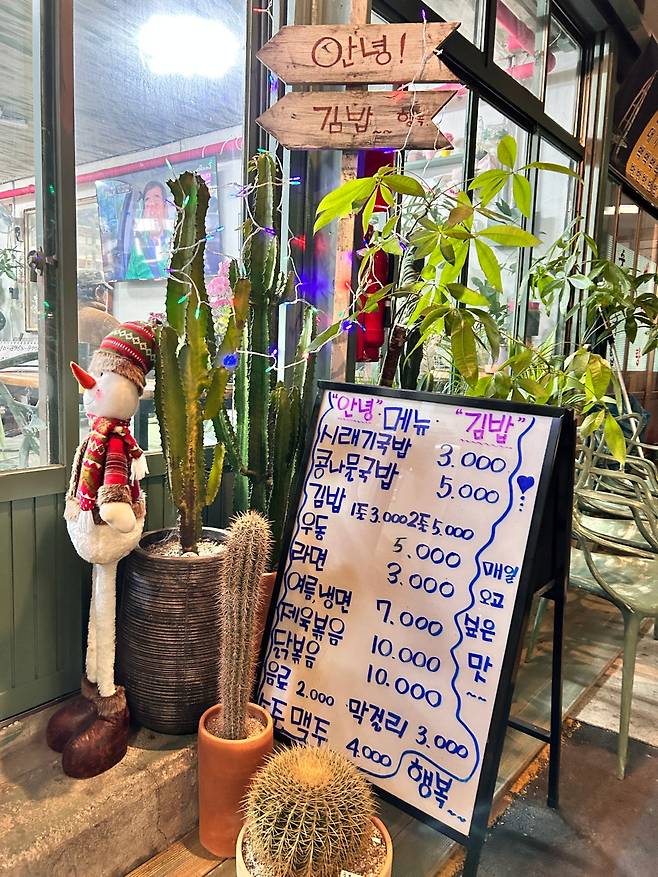 안녕!
김밥~~ 행복
"안녕" 메뉴 "김밥"
시래기국밥 3.000
콩나물국밥 5.000
김밥 1줄 3.000 2줄 5.000
우동 5.000
라면 3.000
여름냉면 7.000
제육볶음 10.000
닭볶음 10.000
음료 2.000 막걸리 3.000
소주 맥주 4.000
매일
오고
싶은
맛~
행복~